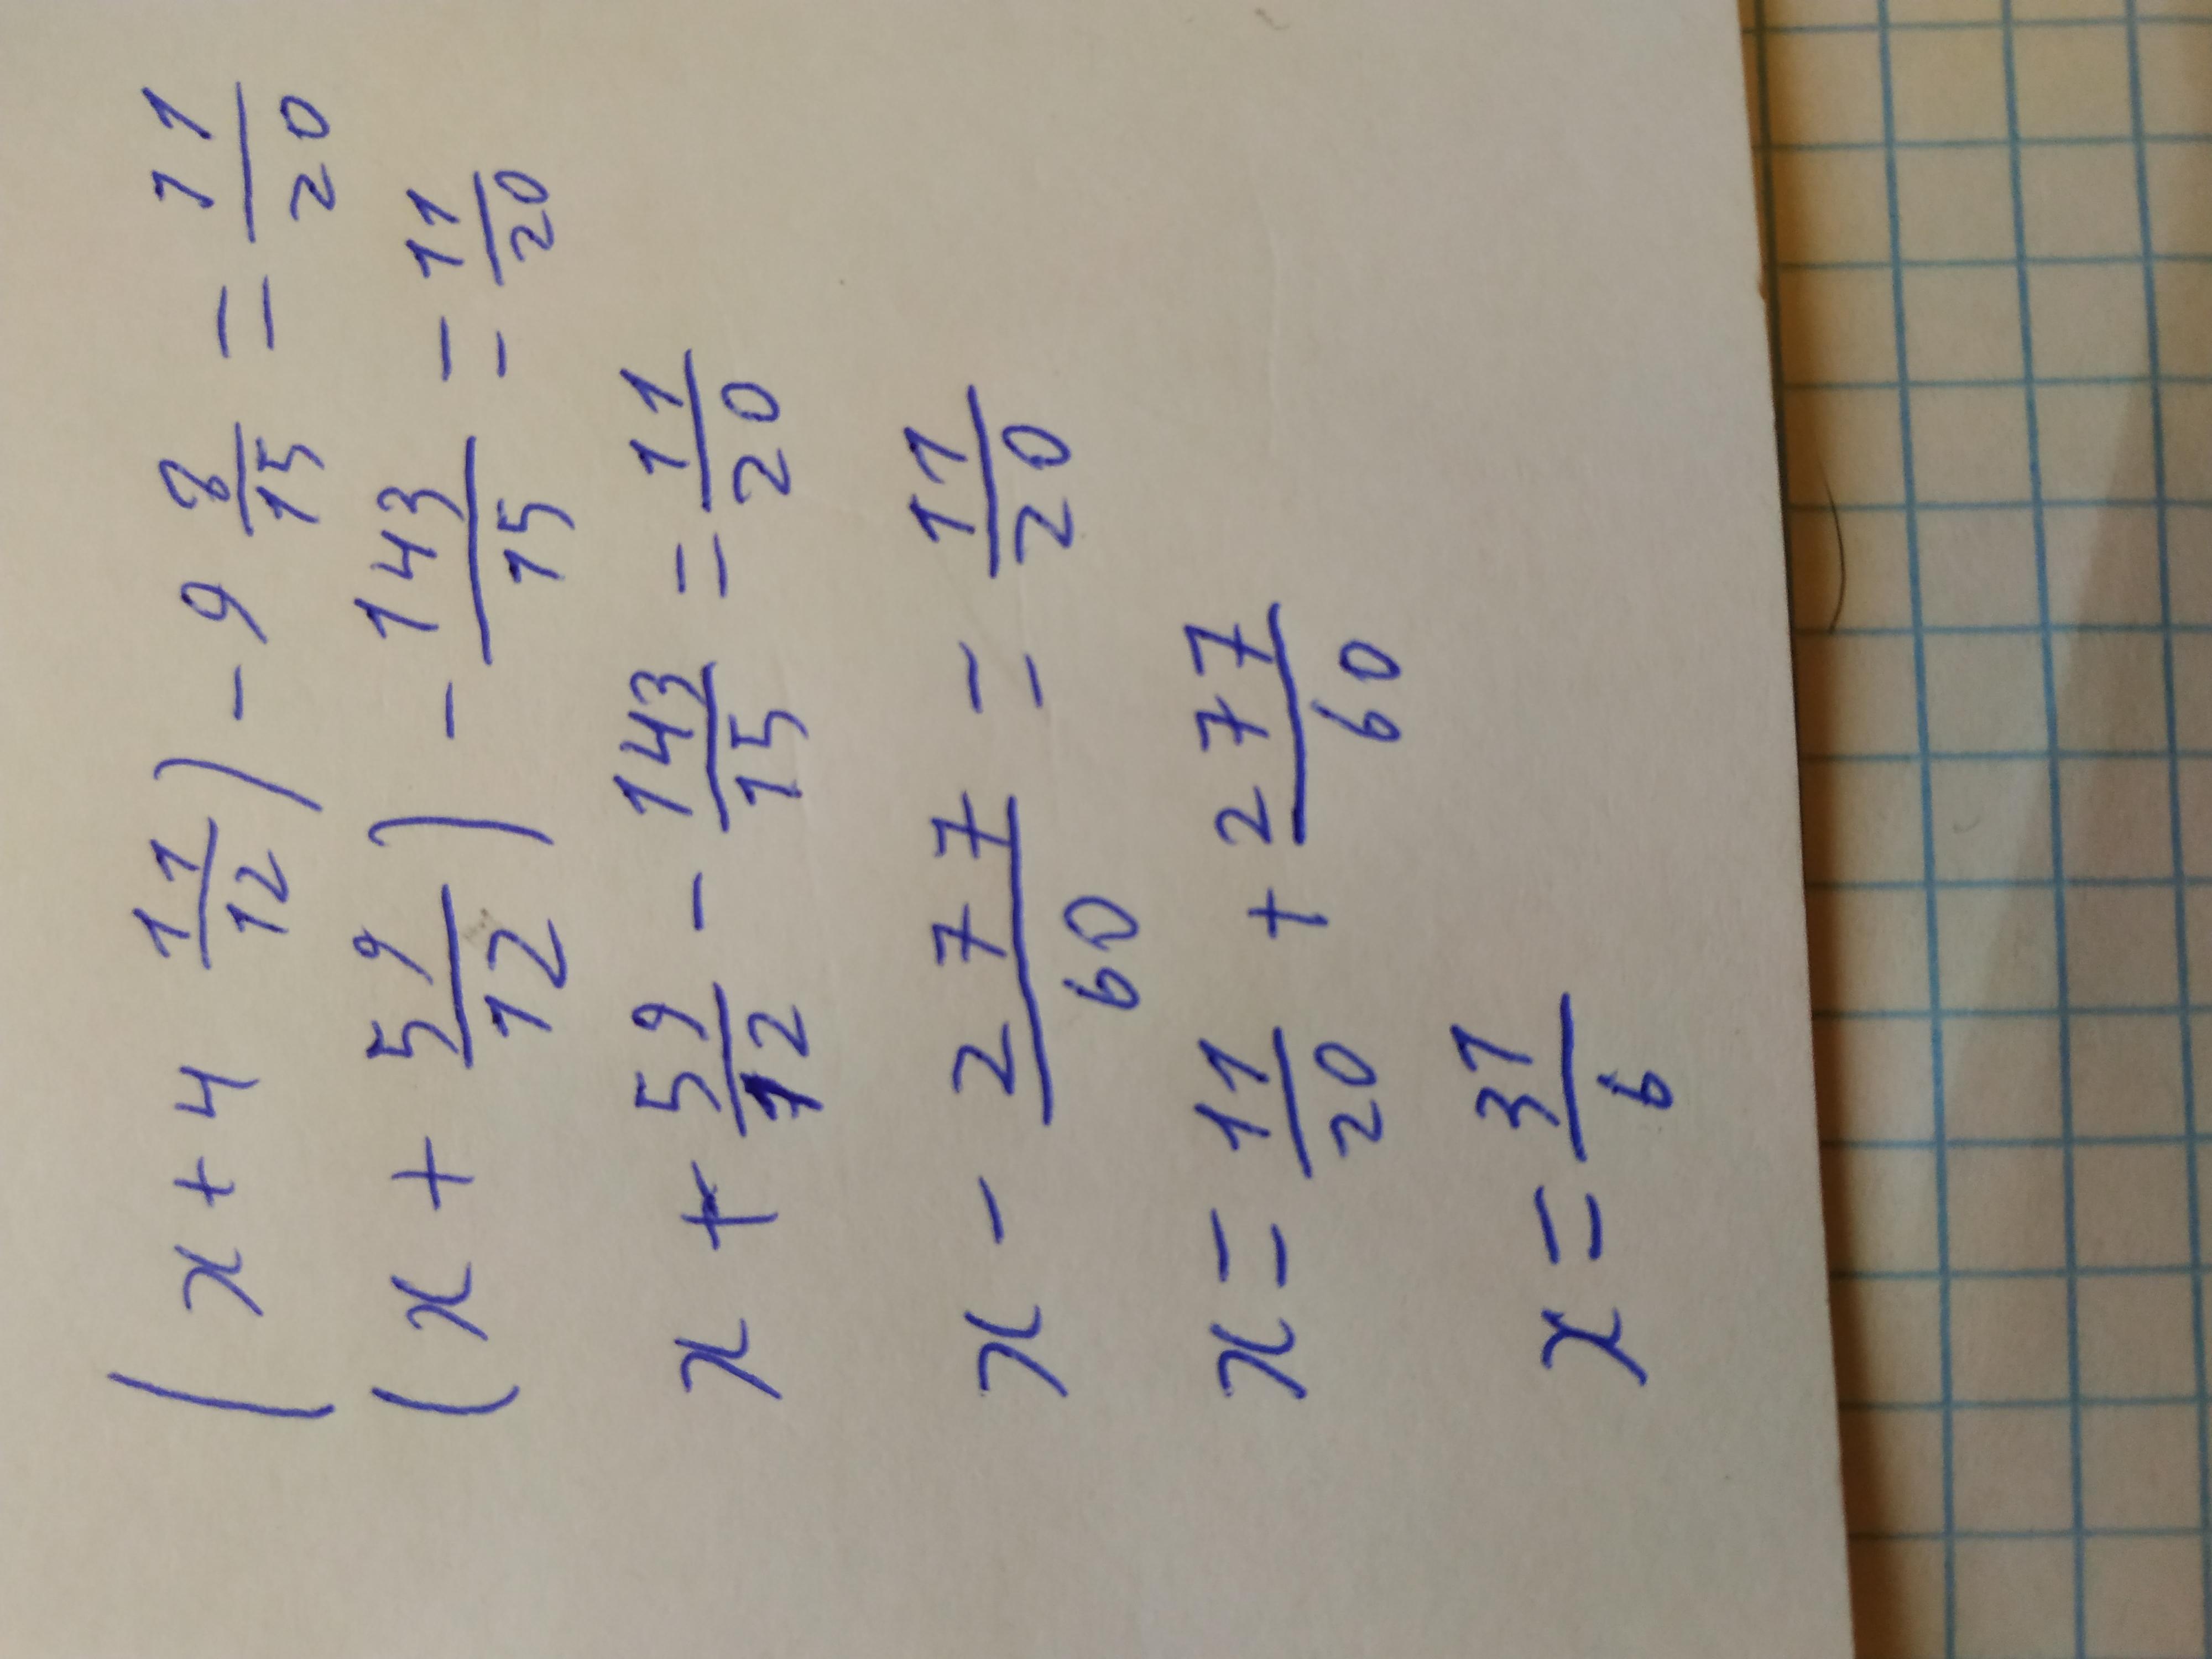 (x + 4 11/12) - 9 8/15 = 11/20
(x + 59/12) - 143/15 = 11/20
x + 59/12 - 143/15 = 11/20
x - 277/60 = 11/20
x = 11/20 + 277/60
x = 31/6